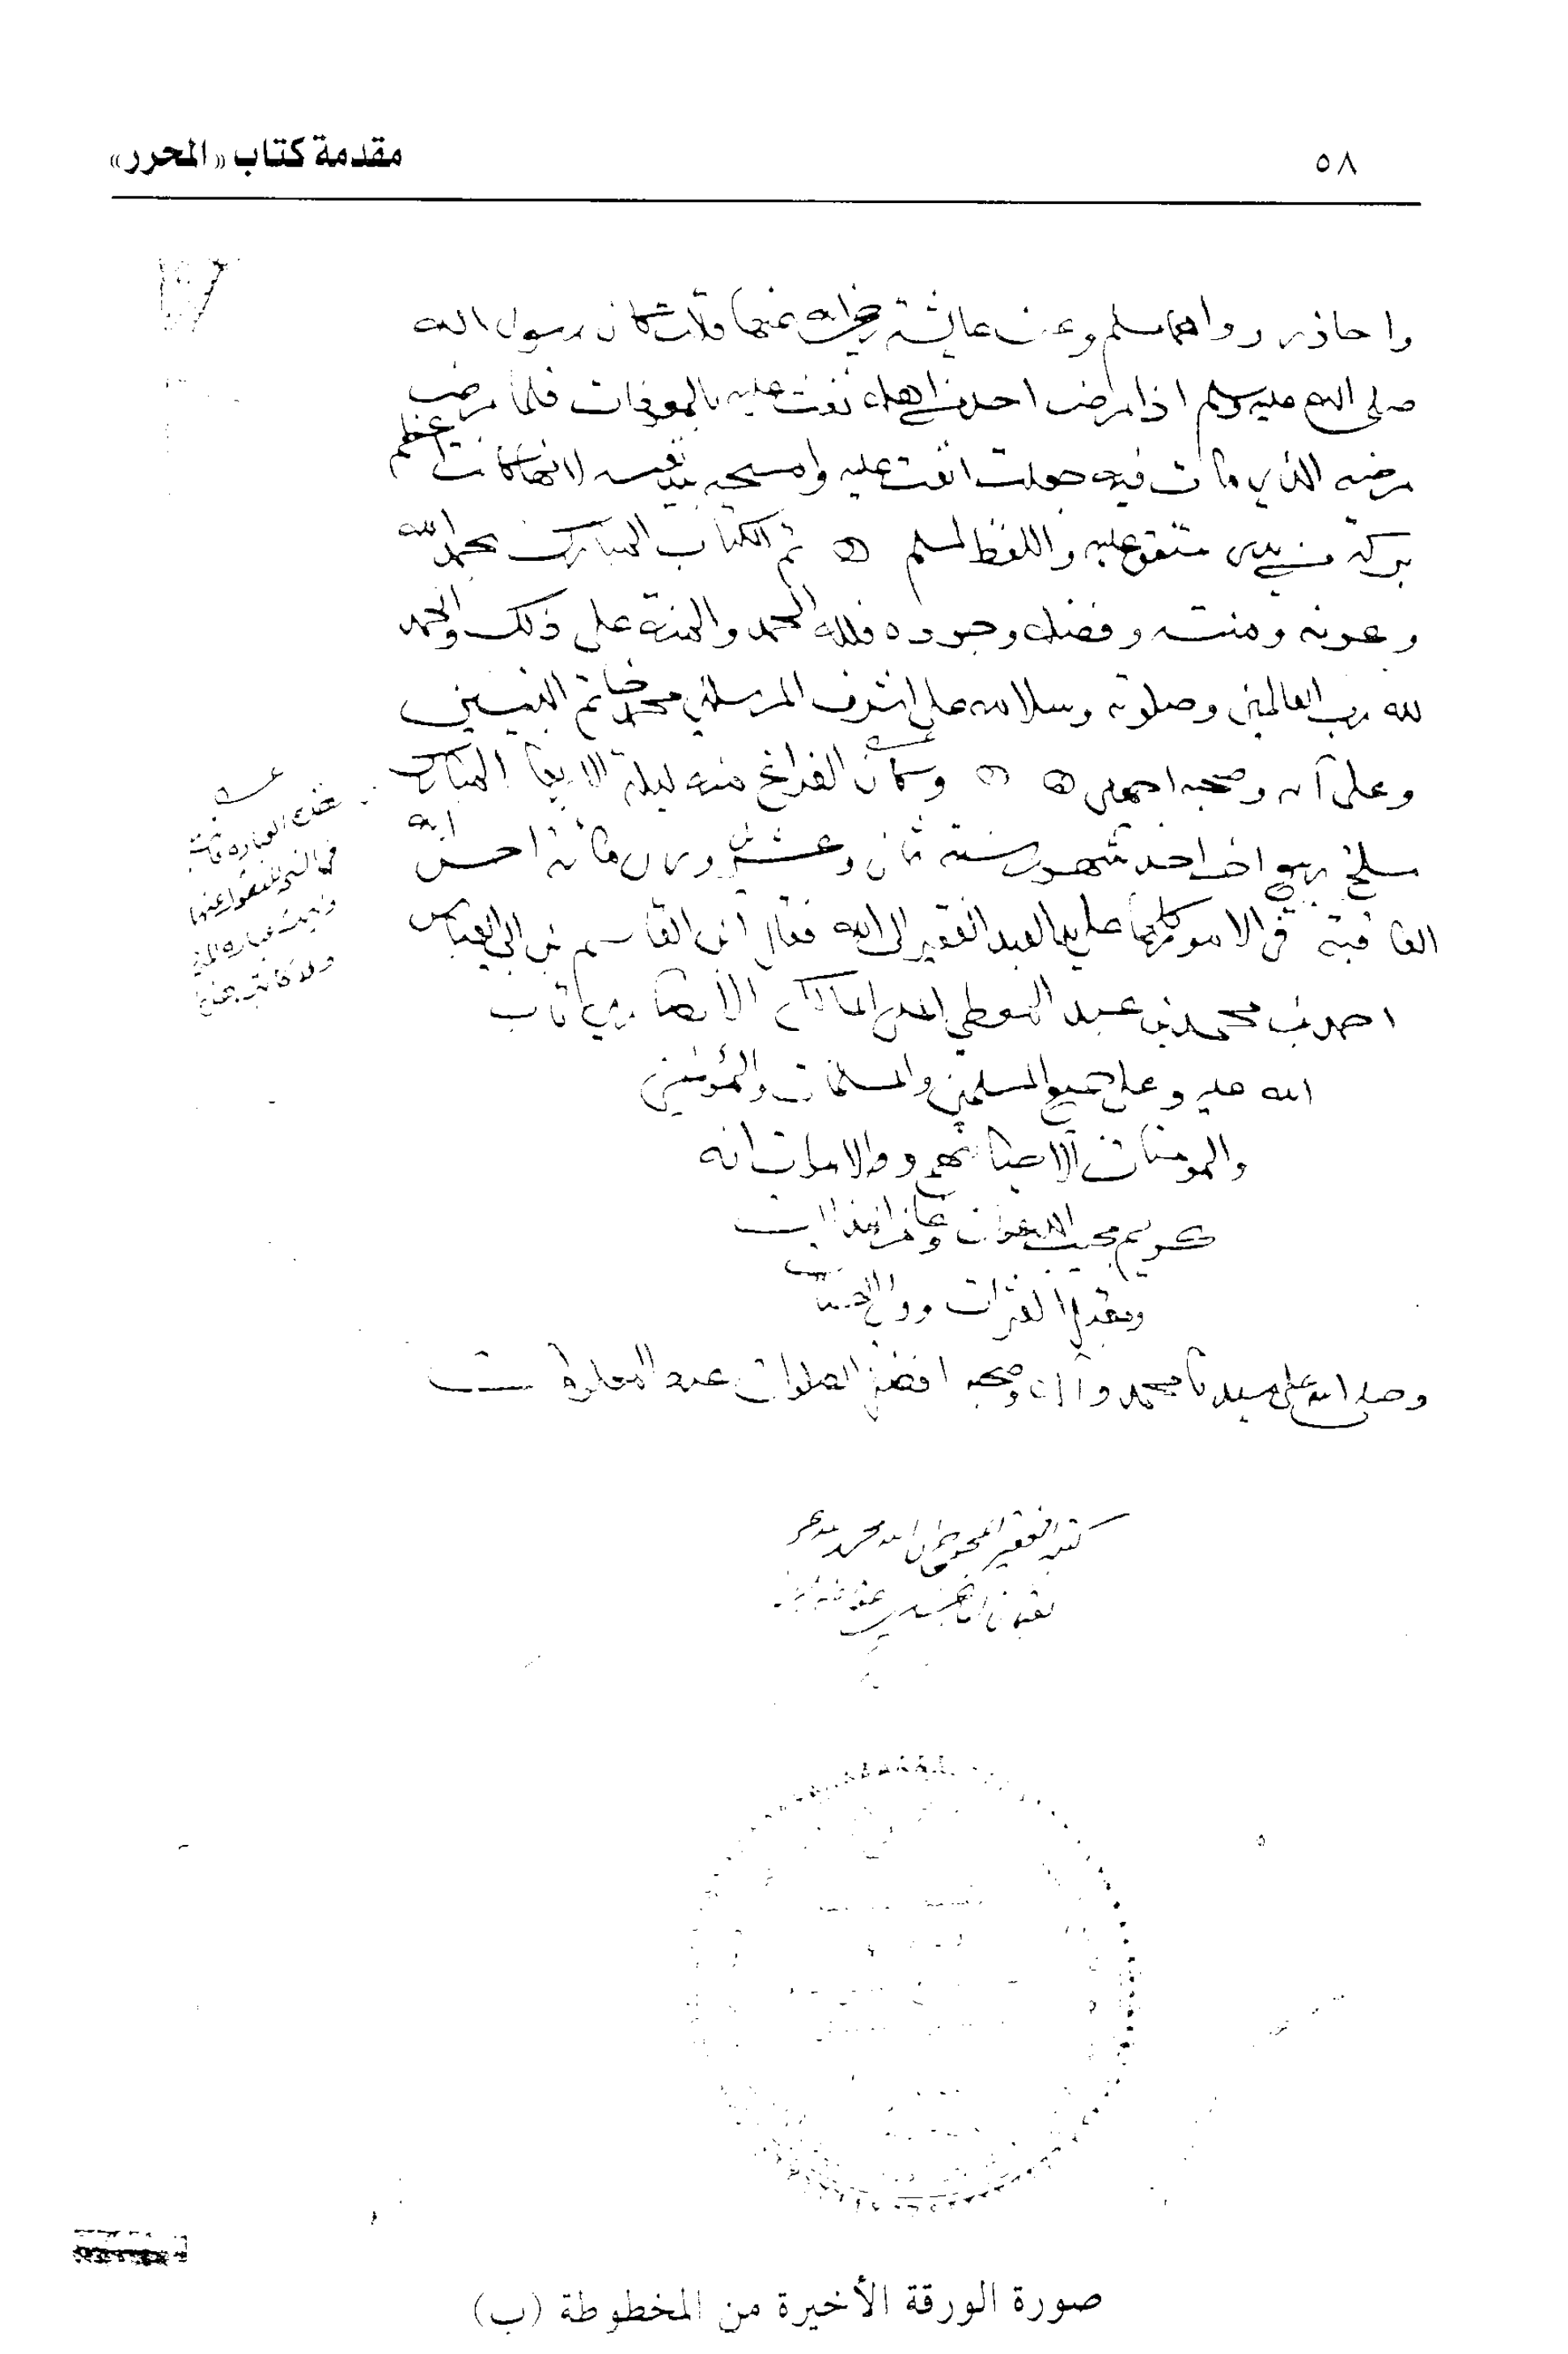 ٥٨
مقدمة كتاب «المحرر»
واحاذر رواهما مسلم وعن عايشة رضي الله عنها قالت كان رسول الله
صلى الله عليه وسلم اذا مرض احد من اهله نفث عليه بالمعوذات فلما مرض
مرضه الذي مات فيه جعلت انفث عليه وامسحه بيد نفسه لانها كانت اعظم
بركة من يدي متفق عليه واللفظ لمسلم تم الكتاب المبارك بحمد الله
وعونه ومنته وفضله وجوده فلله الحمد والمنة على ذلك والحمد
لله رب العالمين وصلوته وسلامه على اشرف المرسلين محمد خاتم النبيين
وعلى آله وصحبه اجمعين وكان الفراغ منه ليلة الاربعا المبارك
سلخ ربيع اخر احد شهور سنة ثمان وعشرين وثمان مائة احسن الله
العاقبة في الامور كلها على يد العبد الفقير الى الله تعالى ابي القاسم بن ابي العباس
احمد بن محمد بن عبد المعطي المالكي الانصاري تاب
الله عليه وعلى جميع المسلمين والمسلمات والمؤمنين
والمومنات الاحيا منهم والاموات انه
كريم مجيب الدعوات وغافر
ومقيل العثرات
وصلى الله على سيدنا محمد وآله وصحبه افضل الصلوات عدد المعلومات
هذه العبارة كانت
في النسخة المنقول عنها
كتبه الفقير
صورة الورقة الأخيرة من المخطوطة (ب)